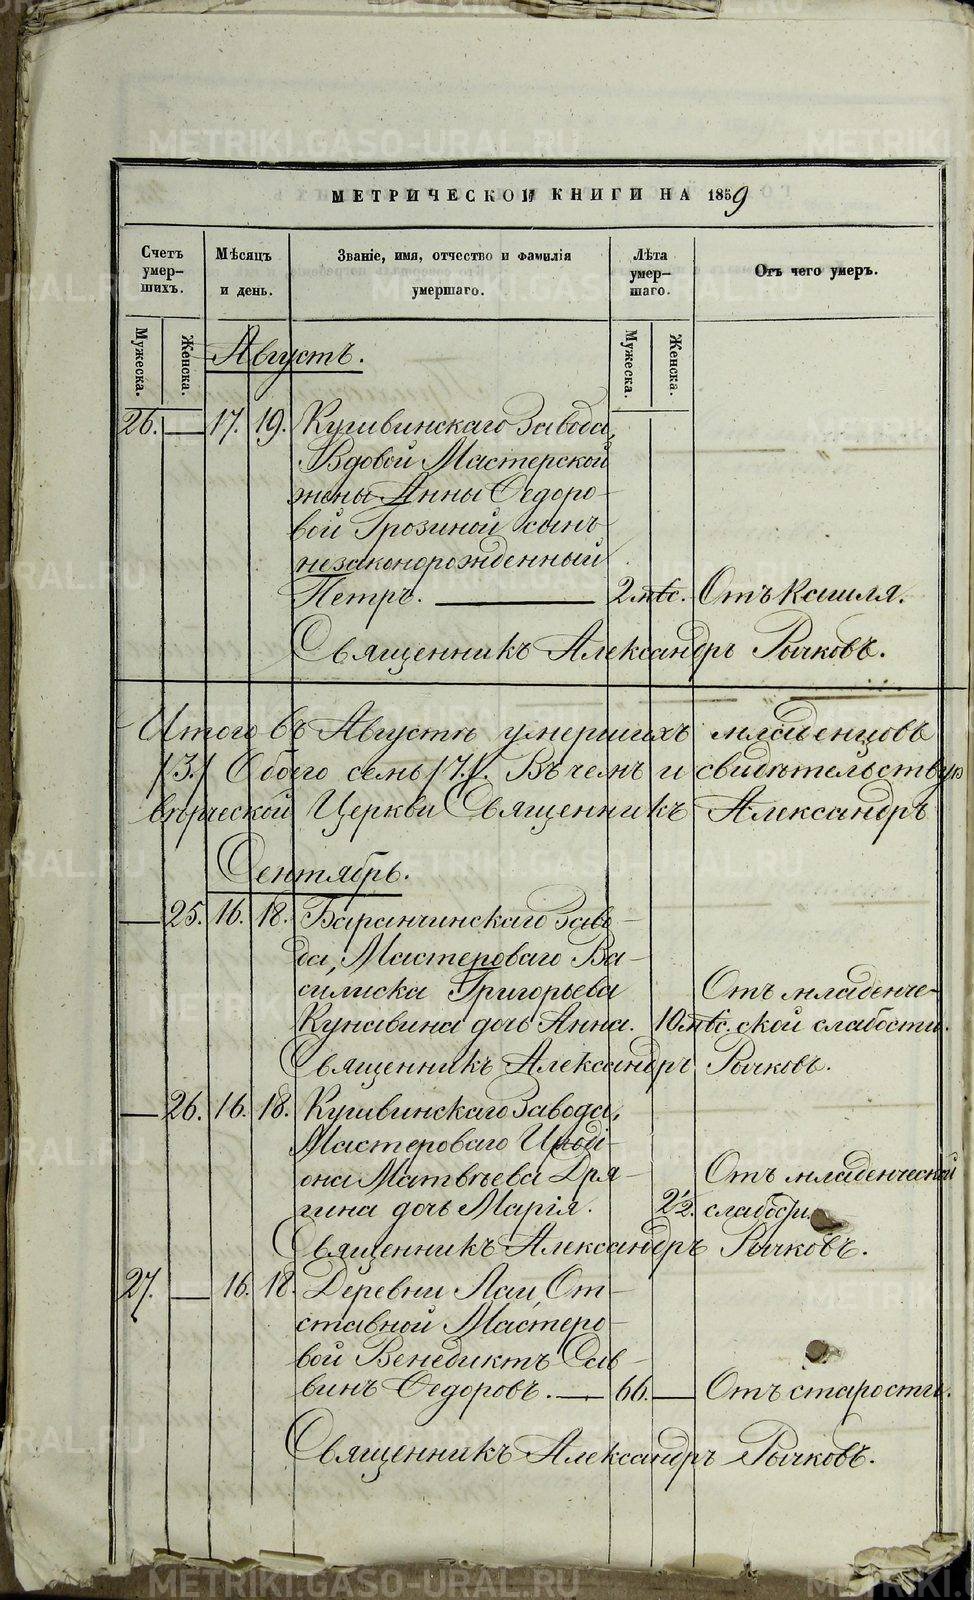 МЕТРИЧЕСКОЙ КНИГИ НА 1859
Счетъ умер-шихъ.
Мѣсяцъ и день.
Званіе, имя, отчество и фамилія умершаго.
Лѣта умер-шаго.
Отъ чего умеръ.
Мужеска. Женска. Мужеска. Женска.
Августъ.
26. — 17. 19. Кушвинскаго Завода,
Вдовой Мастерской
жены Анны Ѳедоро-
вой Грозиной сынъ
незаконорожденный
Петръ. — 2 мѣс. Отъ Кашля.
Священникъ Александръ Рычковъ.
Итого въ Августѣ умершихъ младенцовъ
/3./ Обоего семь /7./. Въ чемъ и свидѣтельствую
Церкви Священникъ Александръ
Сентябрь.
— 25. 16. 18. Баранчинскаго Заво-
да, Мастероваго Ва-
силиска Григорьева Отъ младенче-
Кунавина дочь Анна. 10 мѣс. ской слабости.
Священникъ Александръ Рычковъ.
— 26. 16. 18. Кушвинскаго Завода,
Мастероваго
она Матвѣева Дря- Отъ младенческой
гина дочь Марія. 2 1/2. слабости.
Священникъ Александръ Рычковъ.
27. — 16. 18. Деревни Лаи, От-
ставной Мастеро-
вой Венедиктъ Сав-
винъ Ѳедоровъ. — 66. — Отъ старости.
Священникъ Александръ Рычковъ.
METRIKI.GASO-URAL.RU